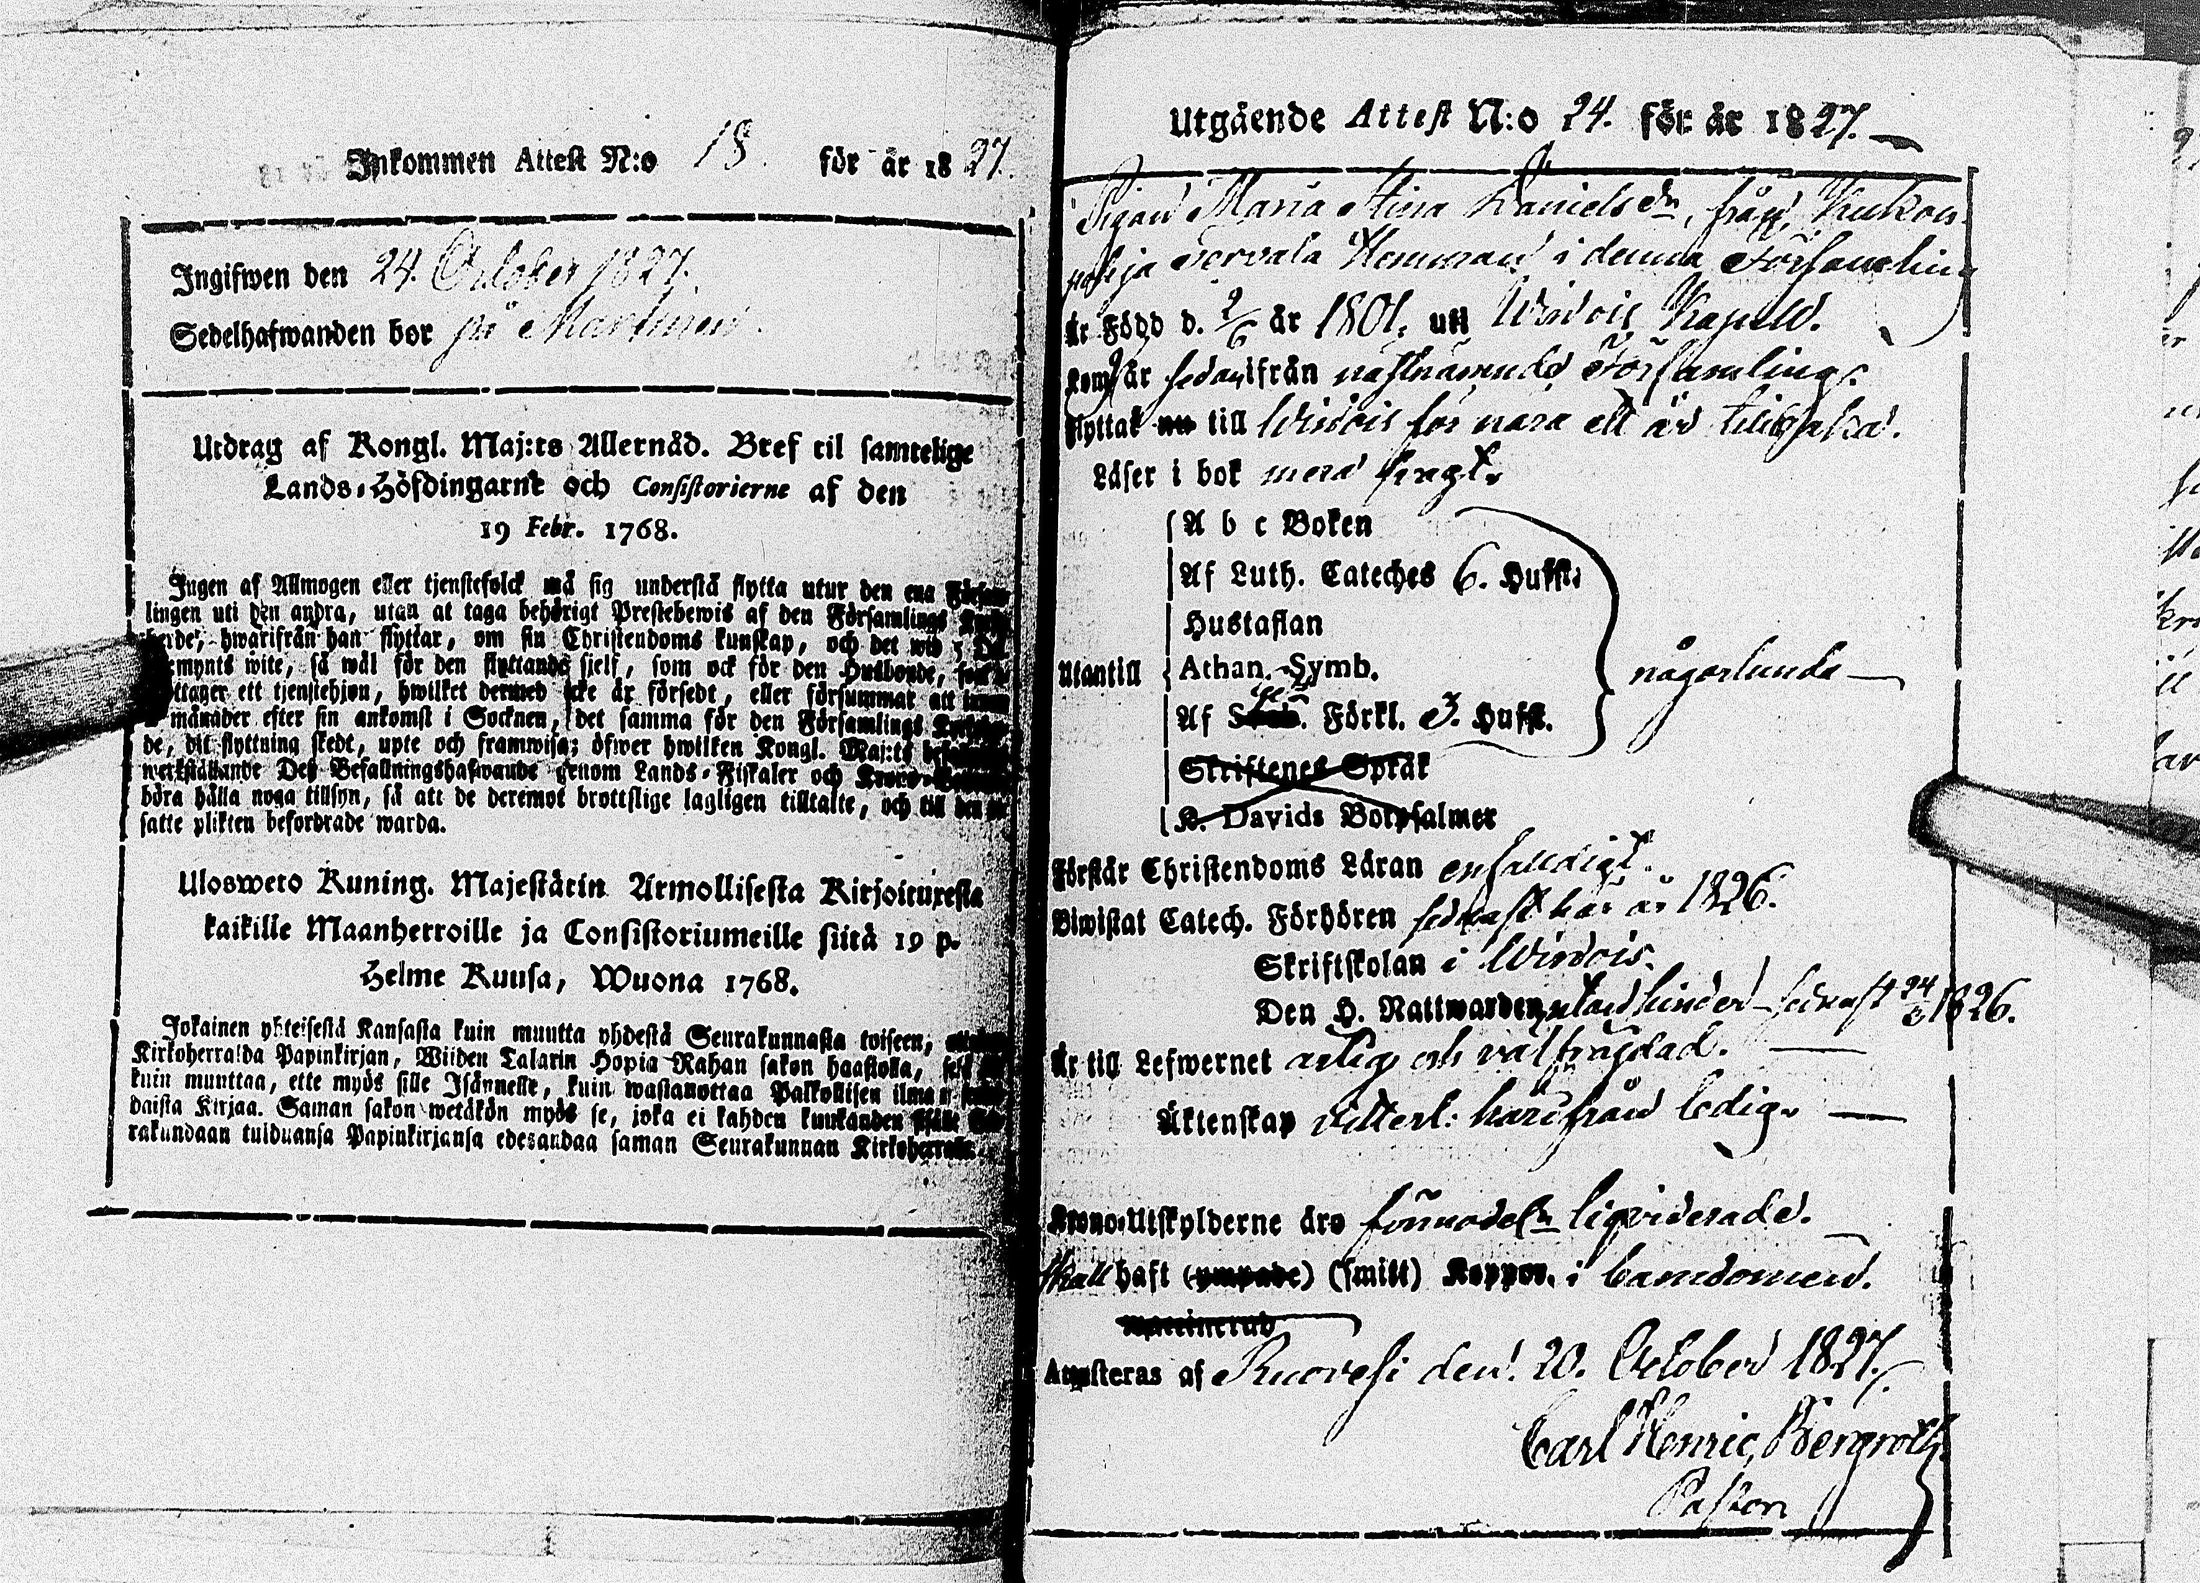 Inkommen Attest N:o 18. för år 1827.
Ingifwen den 24. October 1827.
Sedelhafwanden bor på Martinen.
Utdrag af Kongl. Maj:ts Allernåd. Bref til samtelige
Lands-Höfdingarne och Consistorierne af den
19 Febr. 1768.
Ingen af Allmogen eller tjenstefolck må sig understå flytta utur den ena
lingen uti den andra, utan at taga behörigt Prestebewis af den Församlings
hwarifrån han flyttar, om sin Christendoms kunskap, och det wid 5
wite, så wäl för den flyttande sjelf, som ock för den Husbonde,
ett tjenstehjon, hwilket dermed icke är försedt, eller försummar att
månader efter sin ankomst i Socknen, det samma för den Församlings
de, dit flyttning skedt, upte och framwisa; öfwer hwilken Kongl. Maj:ts
werkställande Des Befallningshafwande genom Lands-Fiskaler och
böra hålla noga tillsyn, så att de deremot brottslige lagligen tilltalte, och till den
satte plikten befordrade warda.
Ulosweto Kuning. Majestätin Armollisesta Kirjoituxesta
kaikille Maanherroille ja Consistoriumeille siitä 19 p.
Helme Kuusa, Wuona 1768.
Jokainen yhteisestä Kansasta kuin muutta yhdestä Seurakunnasta toiseen,
Kirkoherralda Papinkirjan, Wiiden Talarin Hopia Rahan sakon haastolla,
kuin muuttaa, ette myös sille Isännelle, kuin wastanottaa Palkollisen ilman
daista Kirjaa. Saman sakon wetäkön myös se, joka ei kahden kuukauden
rakundaan tulduansa Papinkirjansa edesandaa saman Seurakunnan
Utgående Attest N:o 24. för år 1827.
Pigan Maria Stina Danielsdr, från Kukon
pohja Torvala Hemman i denna Församling
Är Född d. 2/6 år 1801, uti Windois Kapell.
Kom år sedan ifrån nästnämnde Församling.
flyttat nu till Windois för nära ett år tillbaka.
Läser i bok med
A b c Boken
Af Luth. Cateches 6. Hufst.
Hustaflan
Utantill Athan. Symb. någorlunda
Af Förkl. 3. Hufst.
Skriftenes Språk
K. Davids Botpsalmer
Förstår Christendoms Läran enfaldigt.
Biwistat Catech. Förhören sednast här år 1826.
Skriftskolan i Windois.
Den H. Nattwarden utan hinder sednast 24/3 1826.
Är till Lefwernet ärlig och välfrägdad.
Äktenskap härifrån ledig.
Krono-Utskylderne äro förmodeln liqviderade.
Skall haft (ympade) (smitt) Koppor, i barndomen.
Attesteras af Ruovesi den 20. October 1827.
Carl Henric Bergroth
Pastor